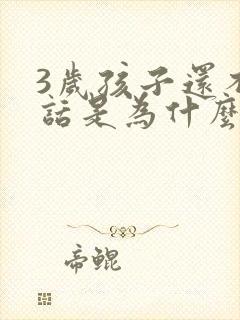 3歲孩子還不
話是為什麼
帝鯤